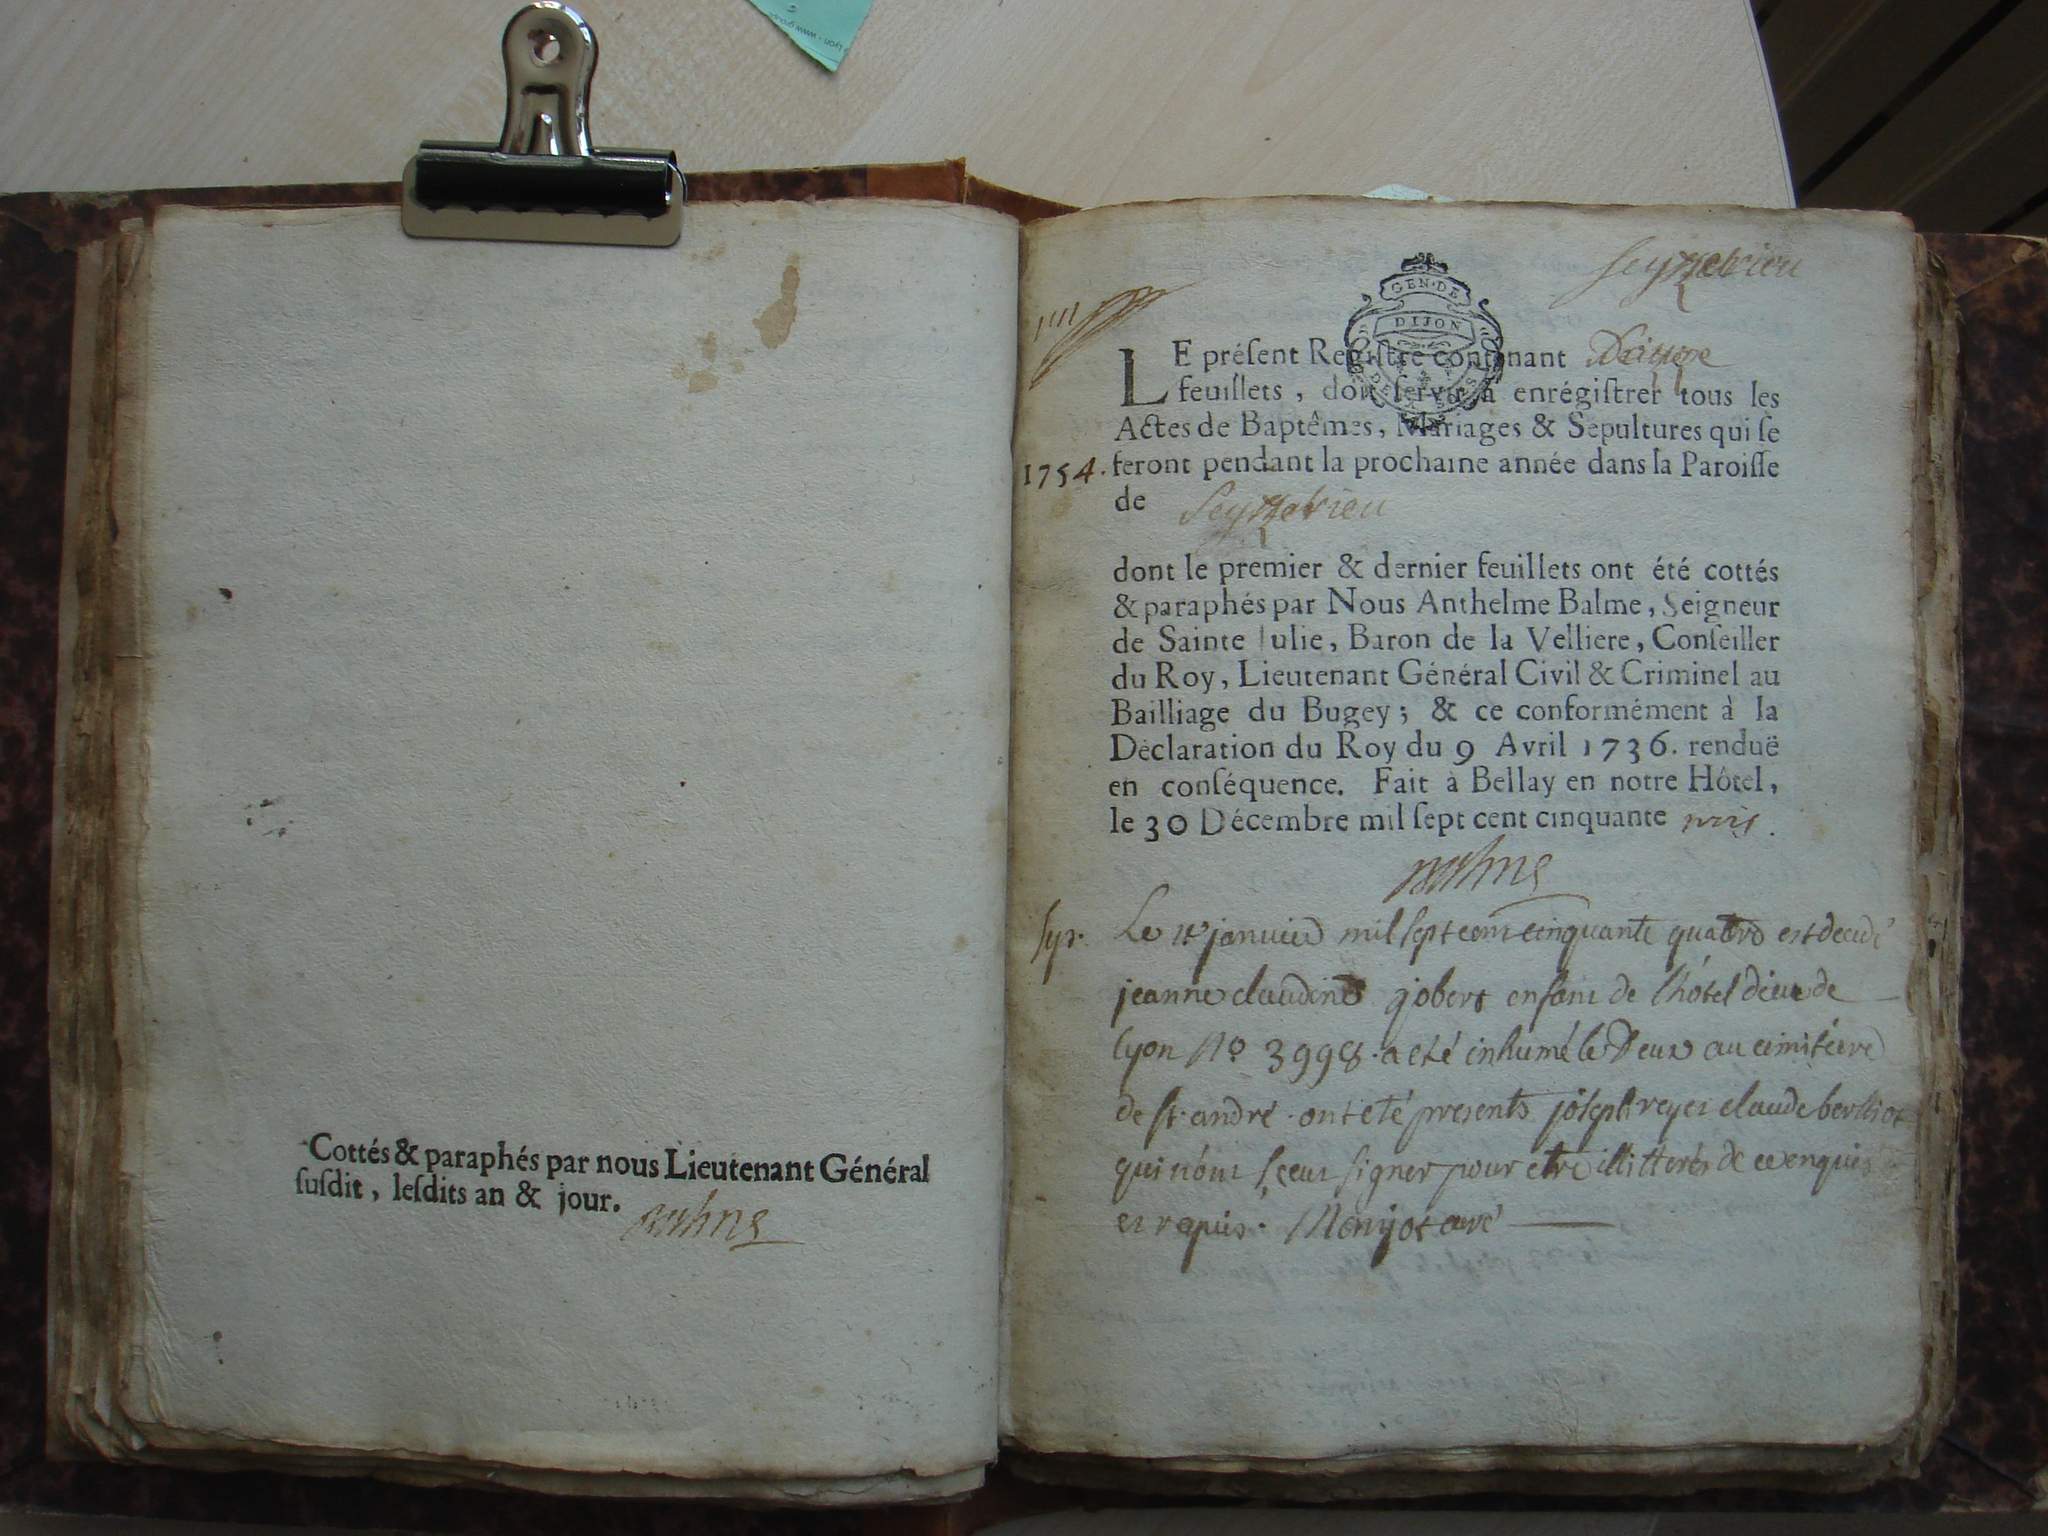 Cottés & paraphés par nous Lieutenant Général
susdit, lesdits an & jour.
Seyzerieu
GEN·DE
DIJON
LE présent Registre contenant
feuillets, doit servir à enrégistrer tous les
Actes de Baptêmes, Mariages & Sepultures qui se
1754. feront pendant la prochaine année dans la Paroisse
de Seyzerieu
dont le premier & dernier feuillets ont été cottés
& paraphés par Nous Anthelme Balme, Seigneur
de Sainte Julie, Baron de la Velliere, Conseiller
du Roy, Lieutenant Général Civil & Criminel au
Bailliage du Bugey; & ce conformément à la
Déclaration du Roy du 9 Avril 1736. renduë
en conséquence. Fait à Bellay en notre Hôtel,
le 30 Décembre mil sept cent cinquante trois.
Le janvier mil sept cent cinquante quatre est decedé
jeanne claudine gobert enfant de l'hôtel dieu de
lyon No 3998. a eté inhumé le Deux au cimitiere
de st. andré. ont eté presents joseph reyei claude berlliot
qui n'ont sceu signer pour etre illitterés de ce enquis
et requis. Monijot curé